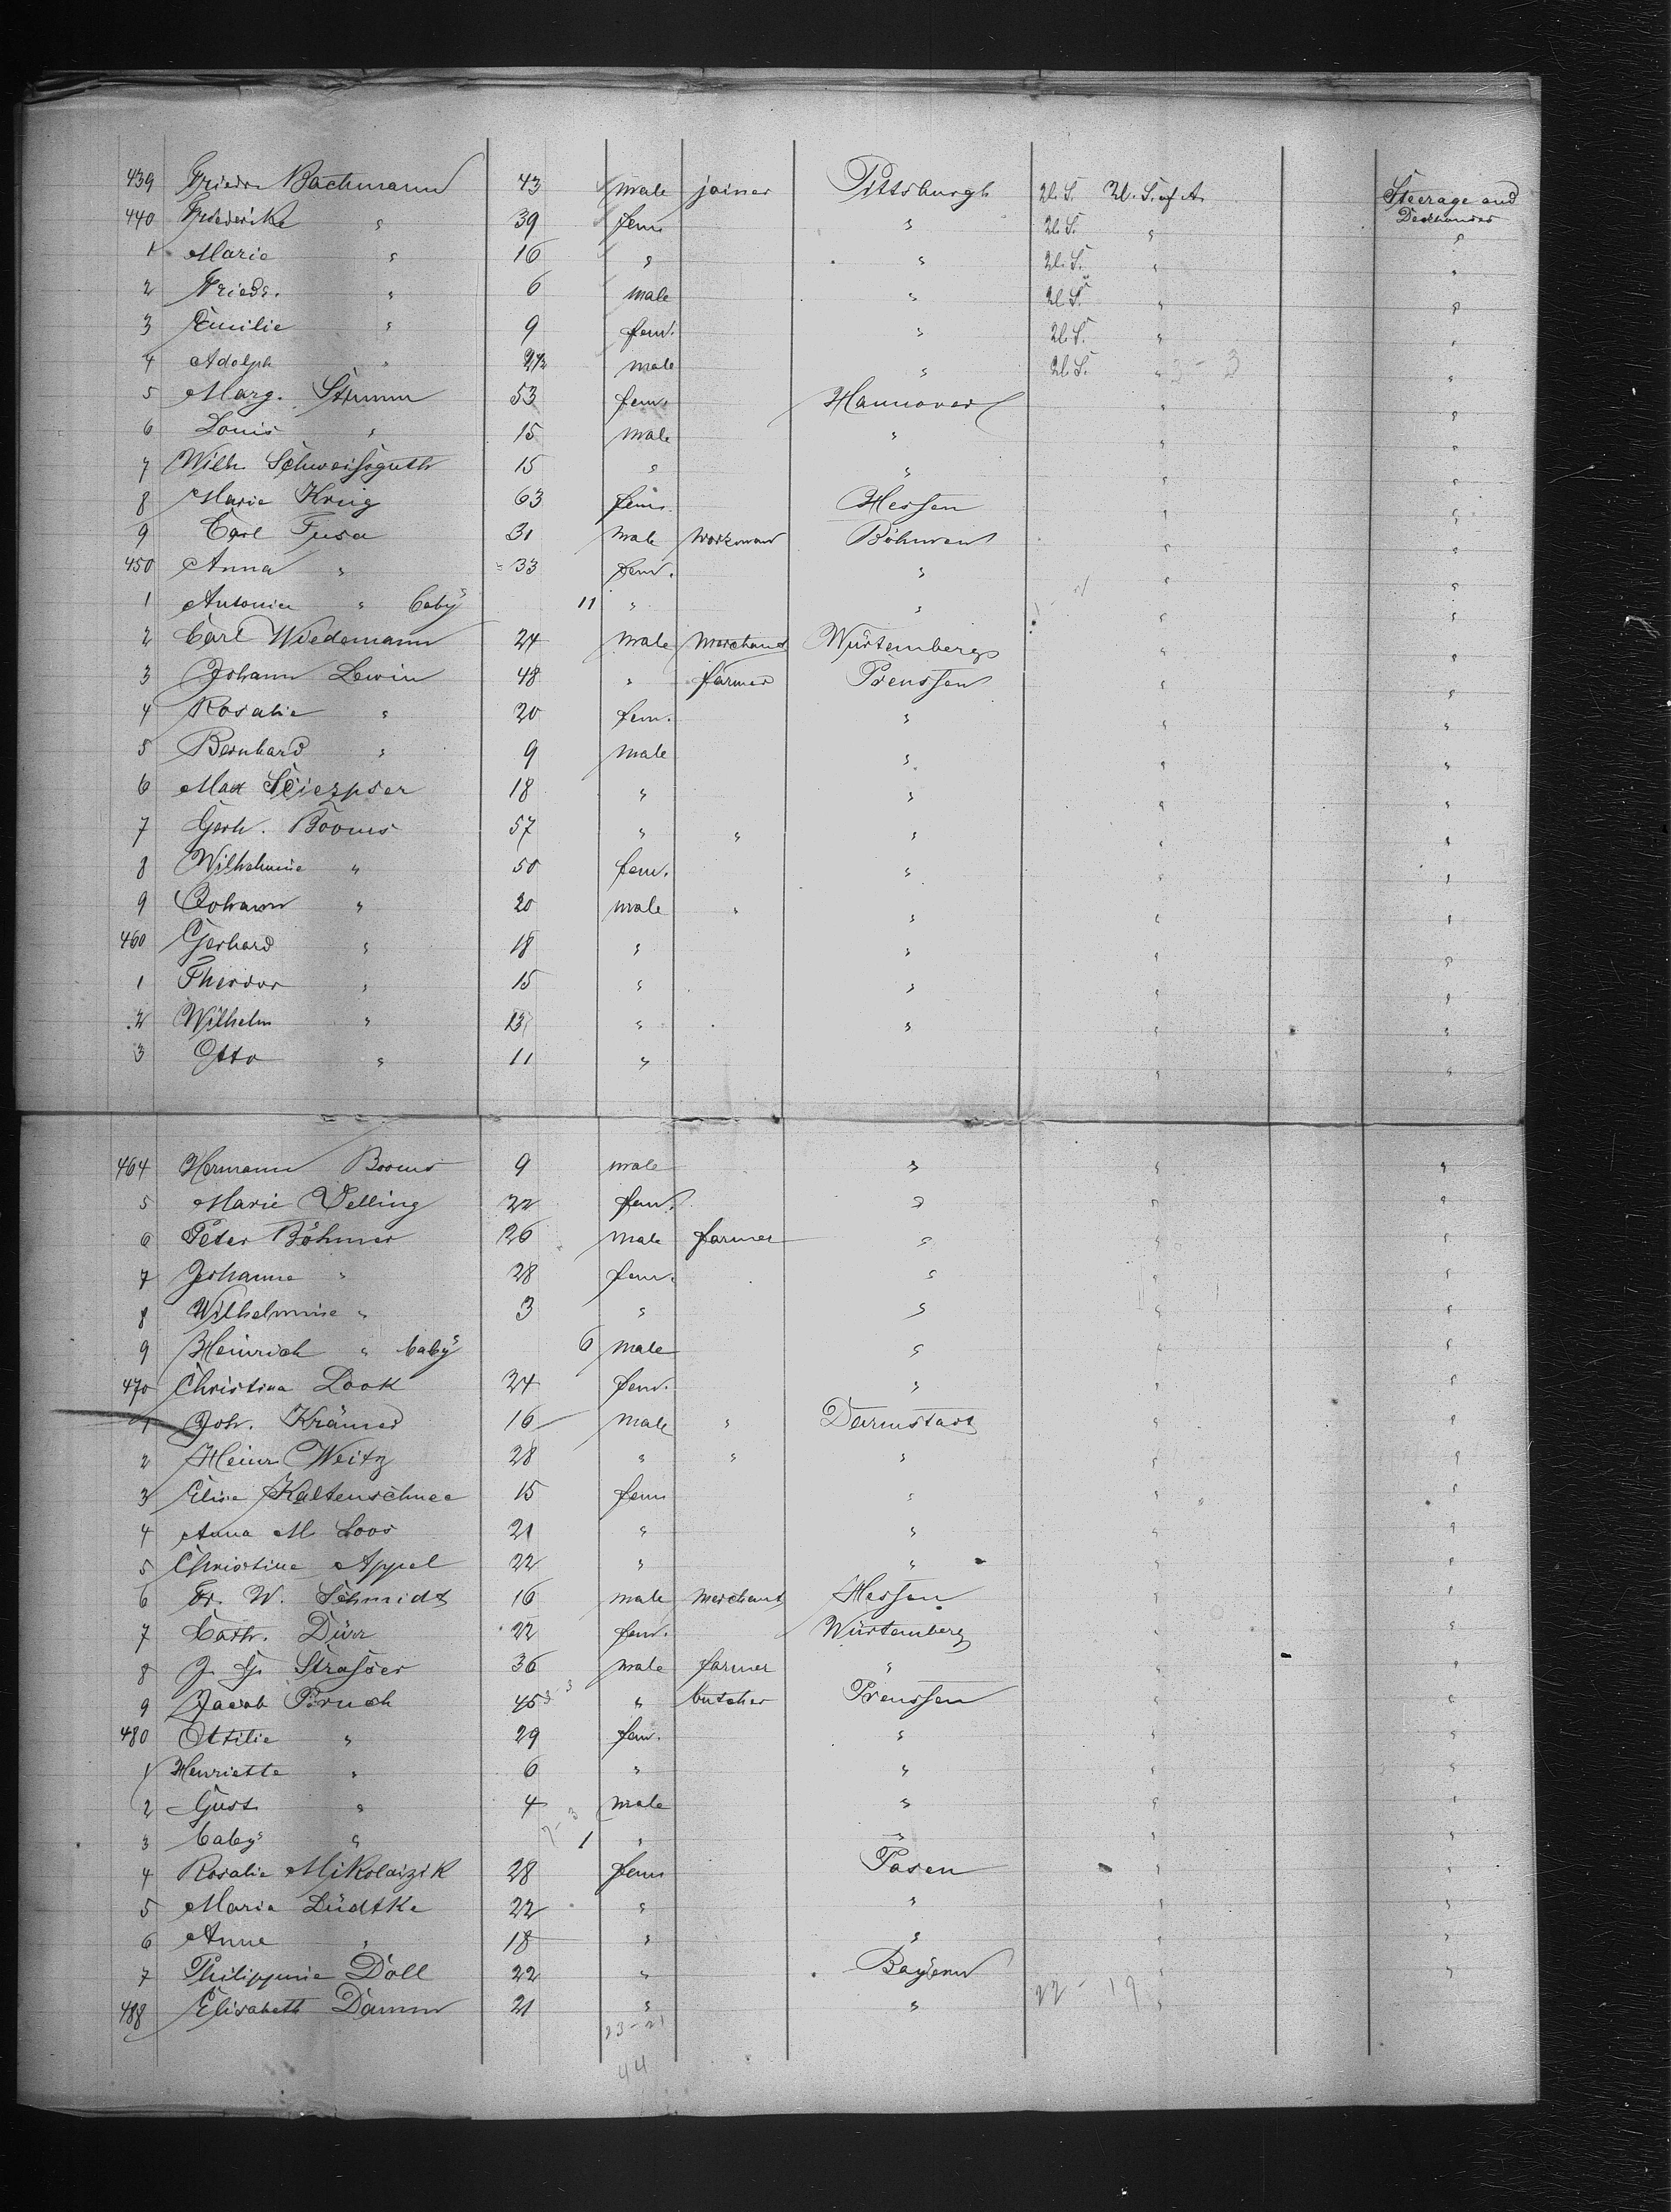 439 Friedr. Bachmann 43 male joiner Pittsburgh U.S. U.S. of A. Steerage and
440 Friederike " 39 fem. " U.S. " "
1 Marie " 16 " " U.S. " "
2 Friedr. " 6 male " U.S. " "
3 Emilie " 9 fem. " U.S. " "
4 Adolph " male " U.S. " "
5 Marg. Stumm 53 fem. Hannover " "
6 Louis " 15 male " " "
7 Wilh. Schweissguth 15 " " " "
8 Marie Krug 63 fem. Hessen " "
9 Carl Fusa 31 male workman Böhmen " "
450 Anna " 33 fem. " " "
1 Antonia " baby 11 " " " "
2 Carl Wiedemann 24 male merchant Würtemberg " "
3 Johann Lewin 48 " farmer Preussen " "
4 Rosalie " 20 fem. " " "
5 Bernhard " 9 male " " "
6 Max 18 " " " "
7 Gerh. Booms 57 " " " " "
8 Wilhelmine " 50 fem. " " "
9 Johann " 20 male " " " "
460 Gerhard " 18 " " " "
1 Theodor " 15 " " " "
2 Wilhelm " 13 " " " "
3 Otto " 11 " " "
464 Hermann Booms 9 male " " "
5 Marie Velling 22 fem. " " "
6 Peter Böhmer 26 male farmer " " "
7 Johanne " 28 fem. " " "
8 Wilhelmine " 3 " " " "
9 Heinrich " baby 6 male " " "
470 Christina Look 24 fem. " " "
1 Joh. Krämer 16 male " Darmstadt " "
2 Heinr. Weitz 28 " " " " "
3 Elise Kaltenschnee 15 fem " " "
4 Anna M. Loos 21 " " " "
5 Christine Appel 22 " " " "
6 Fr. W. Schmidt 16 male merchant Hessen " "
7 Cath. Dürr 22 fem. Würtemberg " "
8 J. G. Strasser 36 male farmer " " "
9 Jacob Pruch 45 " butcher Preussen " "
480 Ottilie " 29 fem. " " "
1 Henriette " 6 " " " "
2 Gust. " 4 male " " "
3 baby " 1 " " " "
4 Rosalie Mikolaizik 28 fem Posen " "
5 Maria Lüdtke 22 " " " "
6 Anne " 18 " " " "
7 Philippine Doll 22 " Bayern " "
488 Elisabeth Damm 21 " " 22 - 19 "
23 - 21
44